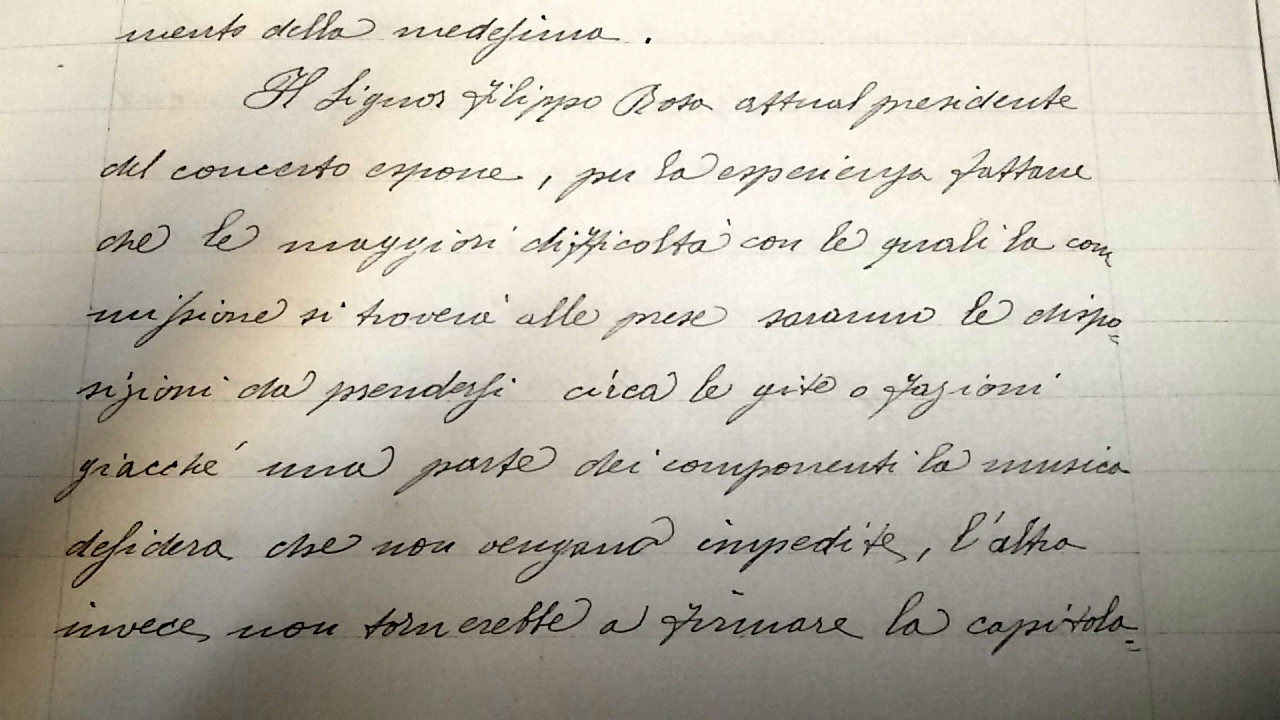 mento della medesima.
Il Signor Filippo Bosa attual presidente
del concerto espone, per la esperienza fattane
che le maggiori difficoltà con le quali la com
missione si troverà alle prese saranno le dispo=
sizioni da prendersi circa le gite o fazioni
giacché una parte dei componenti la musica
desidera che non vengano impedite, l'altra
invece, non tornerebbe a firmare la capitola=